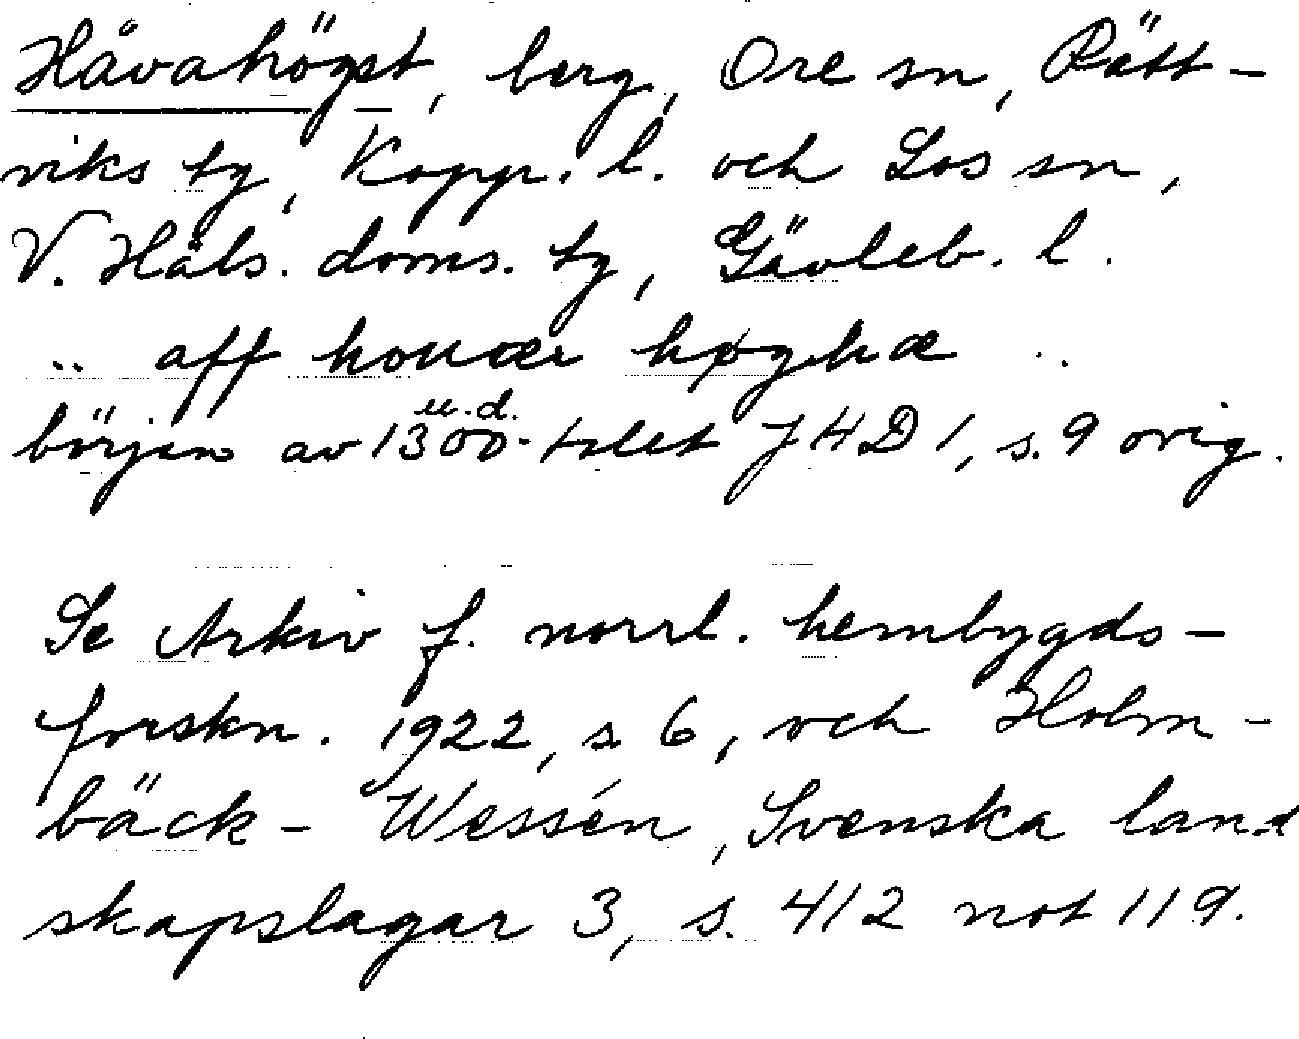 Håvahögst, berg, Ore sn, Rätt-
viks tg, Kopp. l. och Los sn,
V. Häls. doms. tg, Gävleb. l.
.. aff houær høghæ ..
u.d.
början av 1300-talet JHD 1, s. 9 orig.
Se Arkiv f. norrl. hembygds-
forskn. 1922, s 6, och Holm-
bäck - Wessén, Svenska land
skapslagar 3, s. 412 not 119.